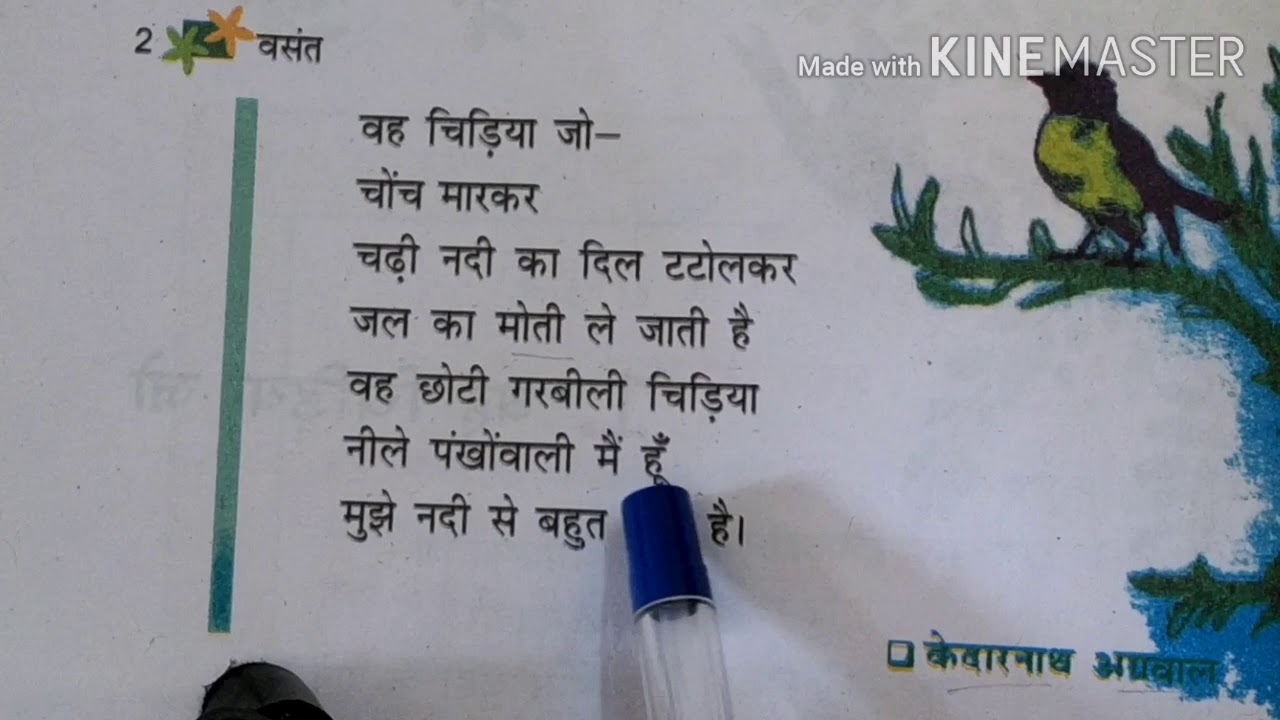 2 वसंत
Made with KINEMASTER
वह चिड़िया जो–
चोंच मारकर
चढ़ी नदी का दिल टटोलकर
जल का मोती ले जाती है
वह छोटी गरबीली चिड़िया
नीले पंखोंवाली मैं हूँ
मुझे नदी से बहुत है।
केदारनाथ अग्रवाल